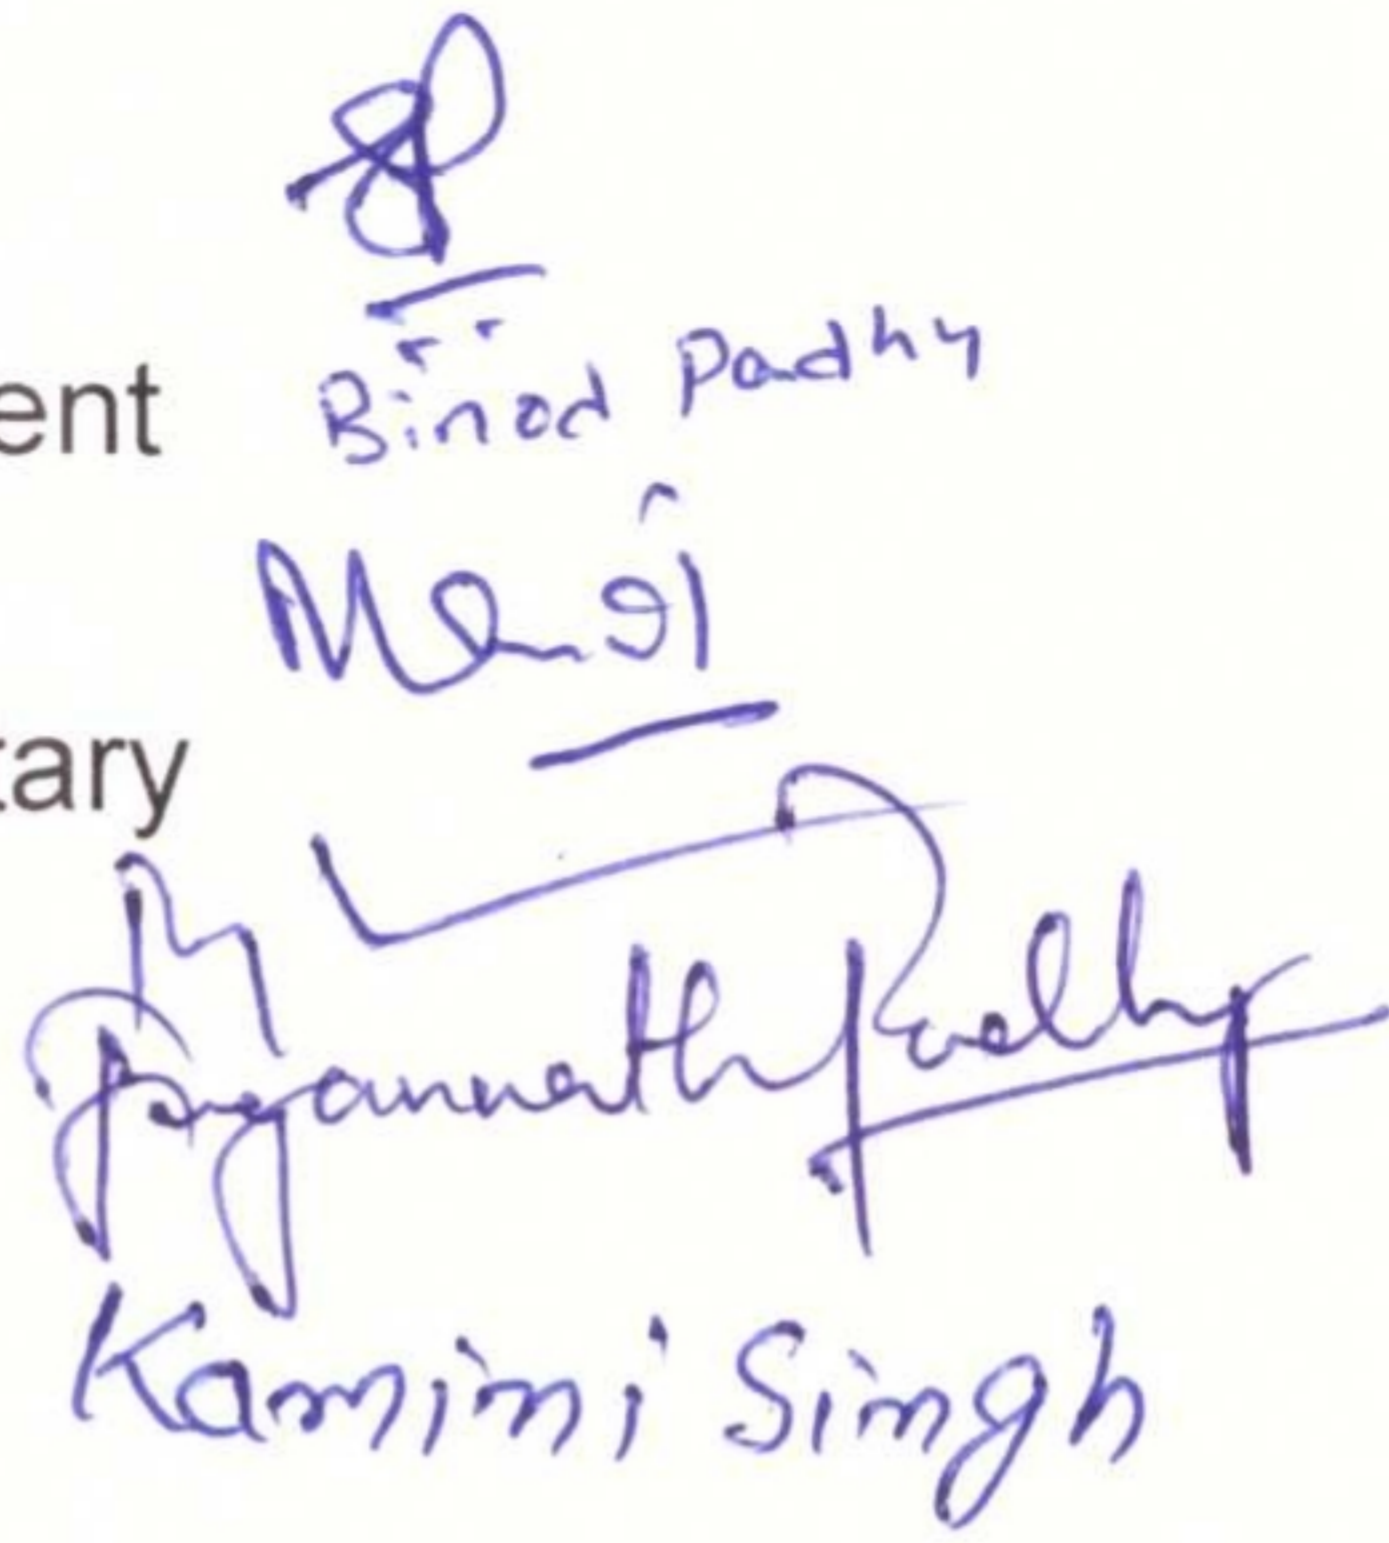 ent
Binod Padhy
tary
Jagannath Padhy
Kamini Singh